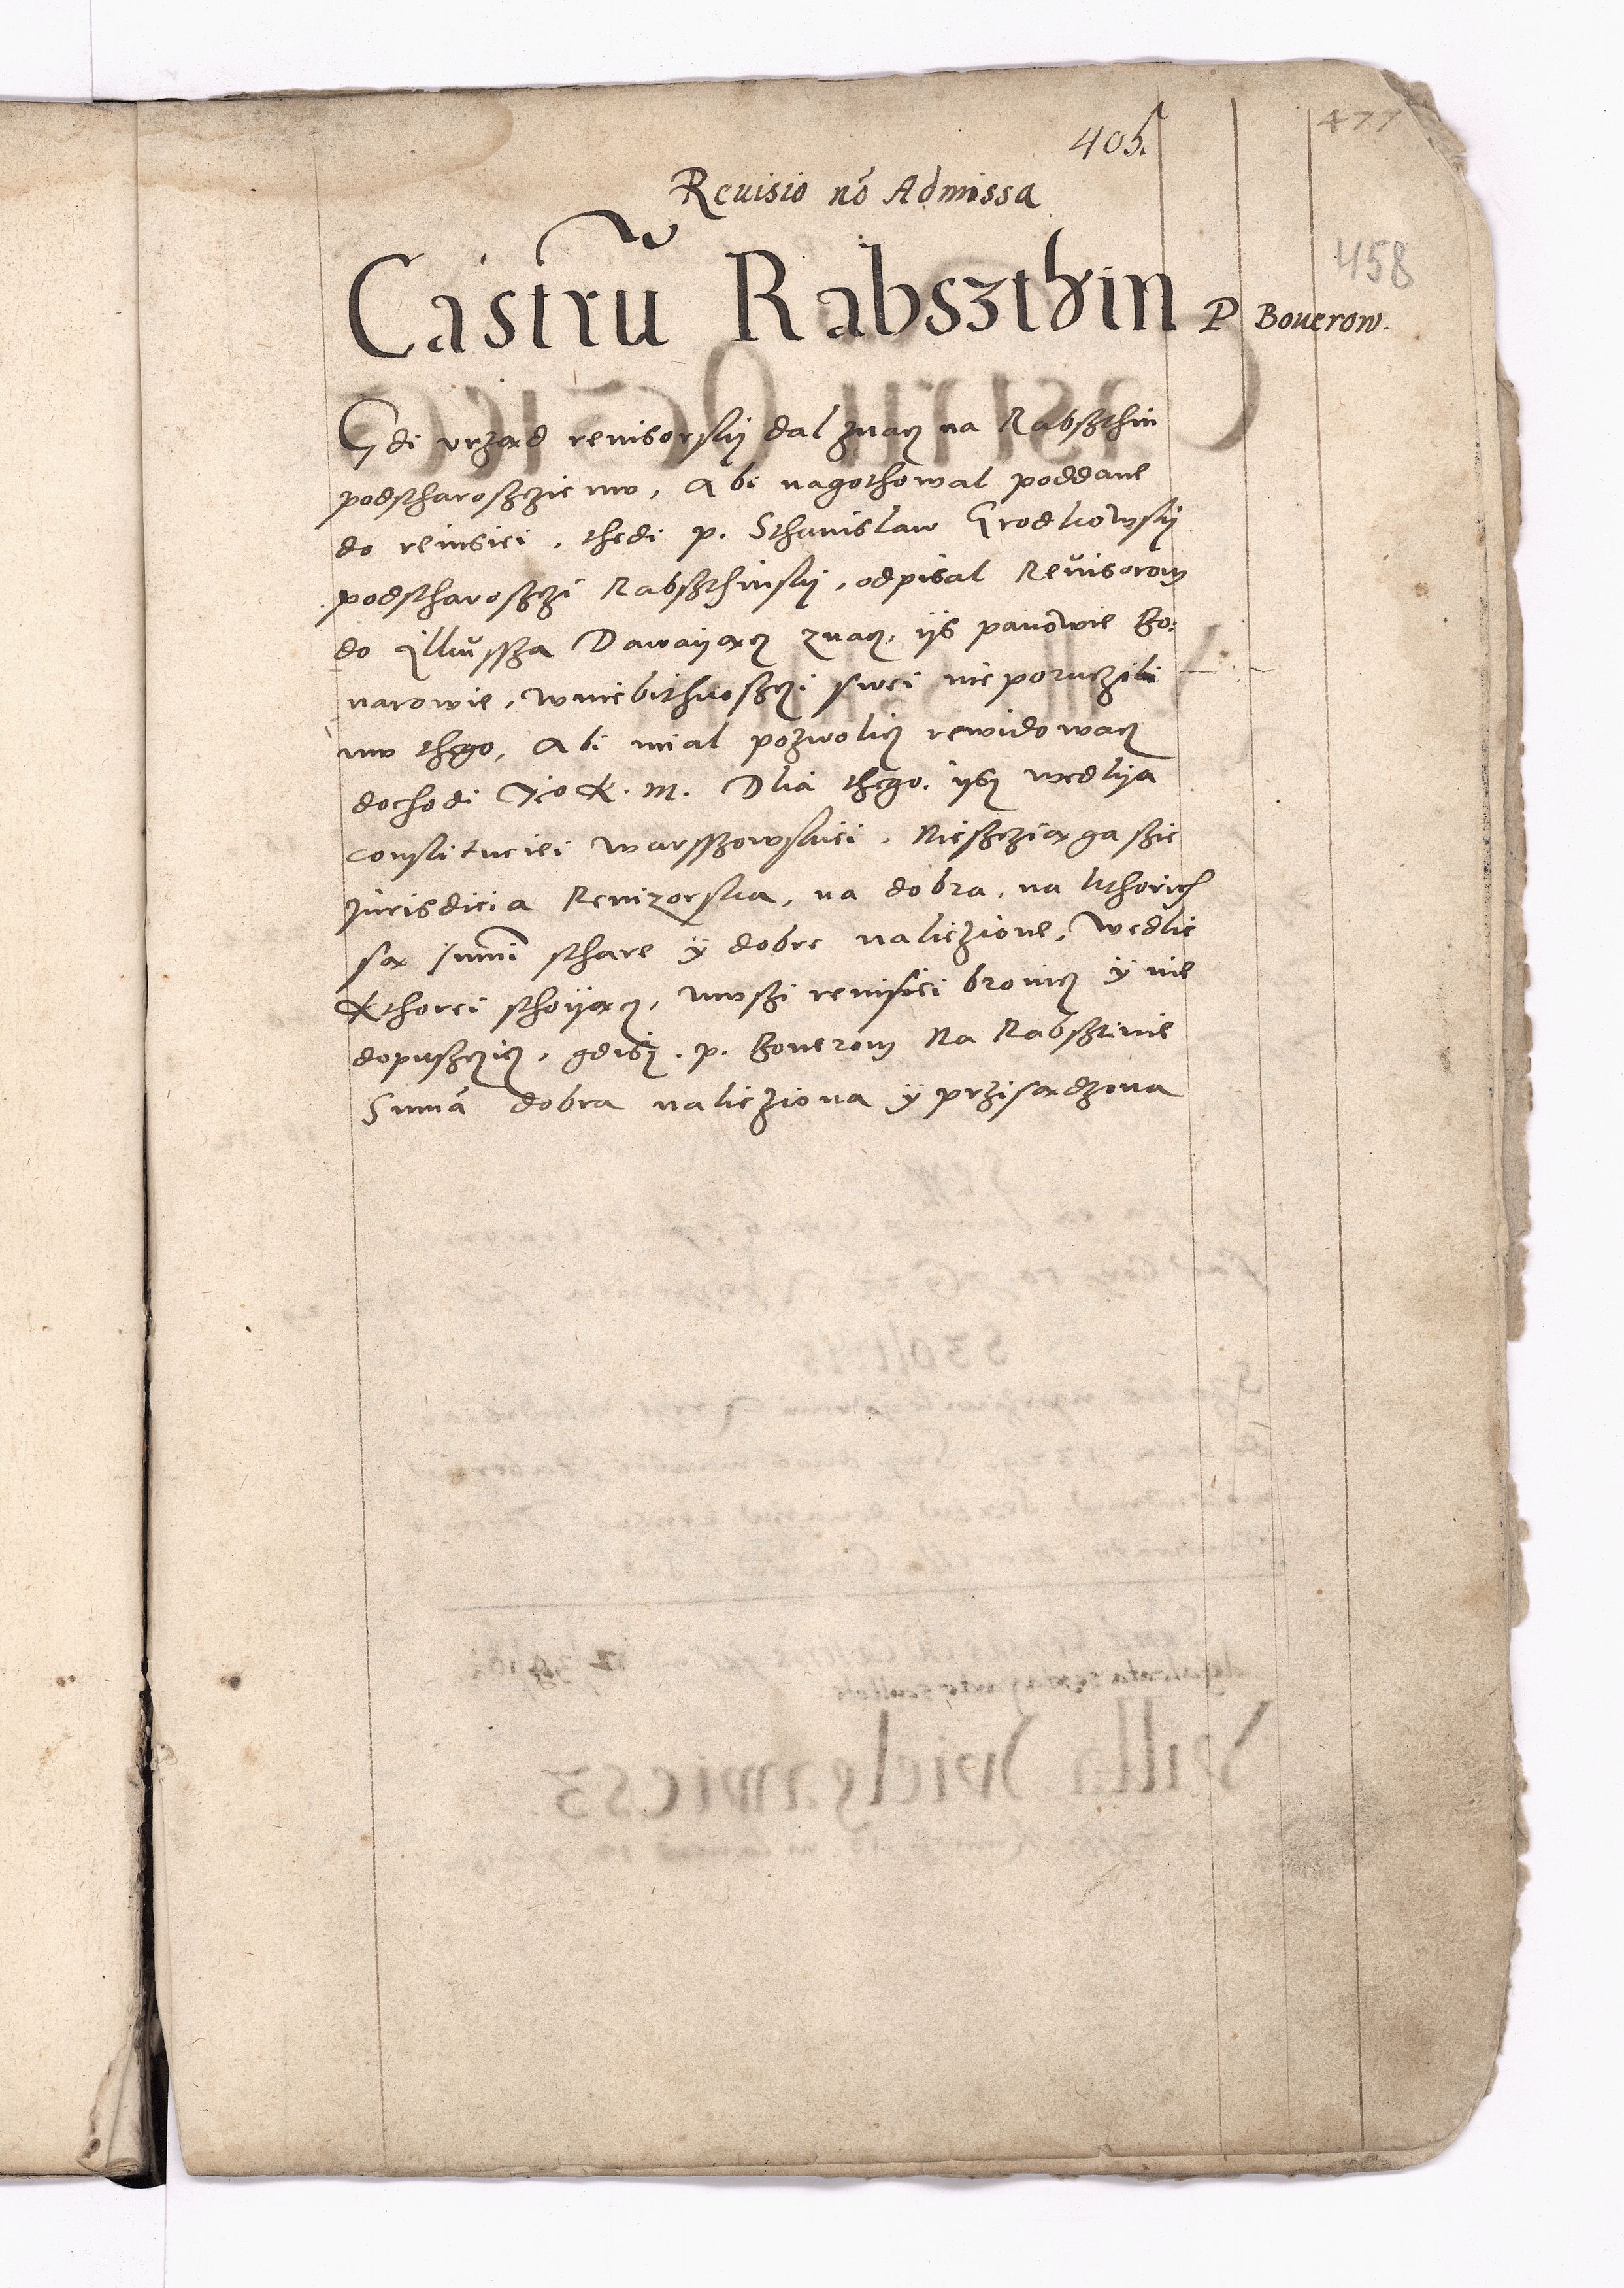 477
405.
Reuisio nō Admissa
458
Castrū Rabszthin P Bouerow.
Gdi vrząd reuisorskij dal znacz na Rabsthin
podstharosczie mw, Abi nagothowal poddane
do reuisiei, thedi p. Sthanislaw Grodkowskij
podstharosczi Rabszthinskij, odpisal Reuisorom
do Ilkussza Dawaijącz znacz, ijs panowie Bo:
narowie, w niebithnosczi swei nie porucżili
mw thego, Abi mial pozwolicz rewidowacz
dochodi Jeo K. M. Dlia thego, ijsz wedlija
constituciei warsszowskiei, Niesczią ga szie
Jurisdicia Reuizorska, na dobra, na kthorich
są summi sthare ÿ dobre naliczione, Wedlie
Kthorei sthoijącz, mwszi reuisiei bronicz ÿ nie
dopusczicz, gdisz. p. Bonerom Na Rabsztinie
Summa dobra naliczziona ÿ przisądzona